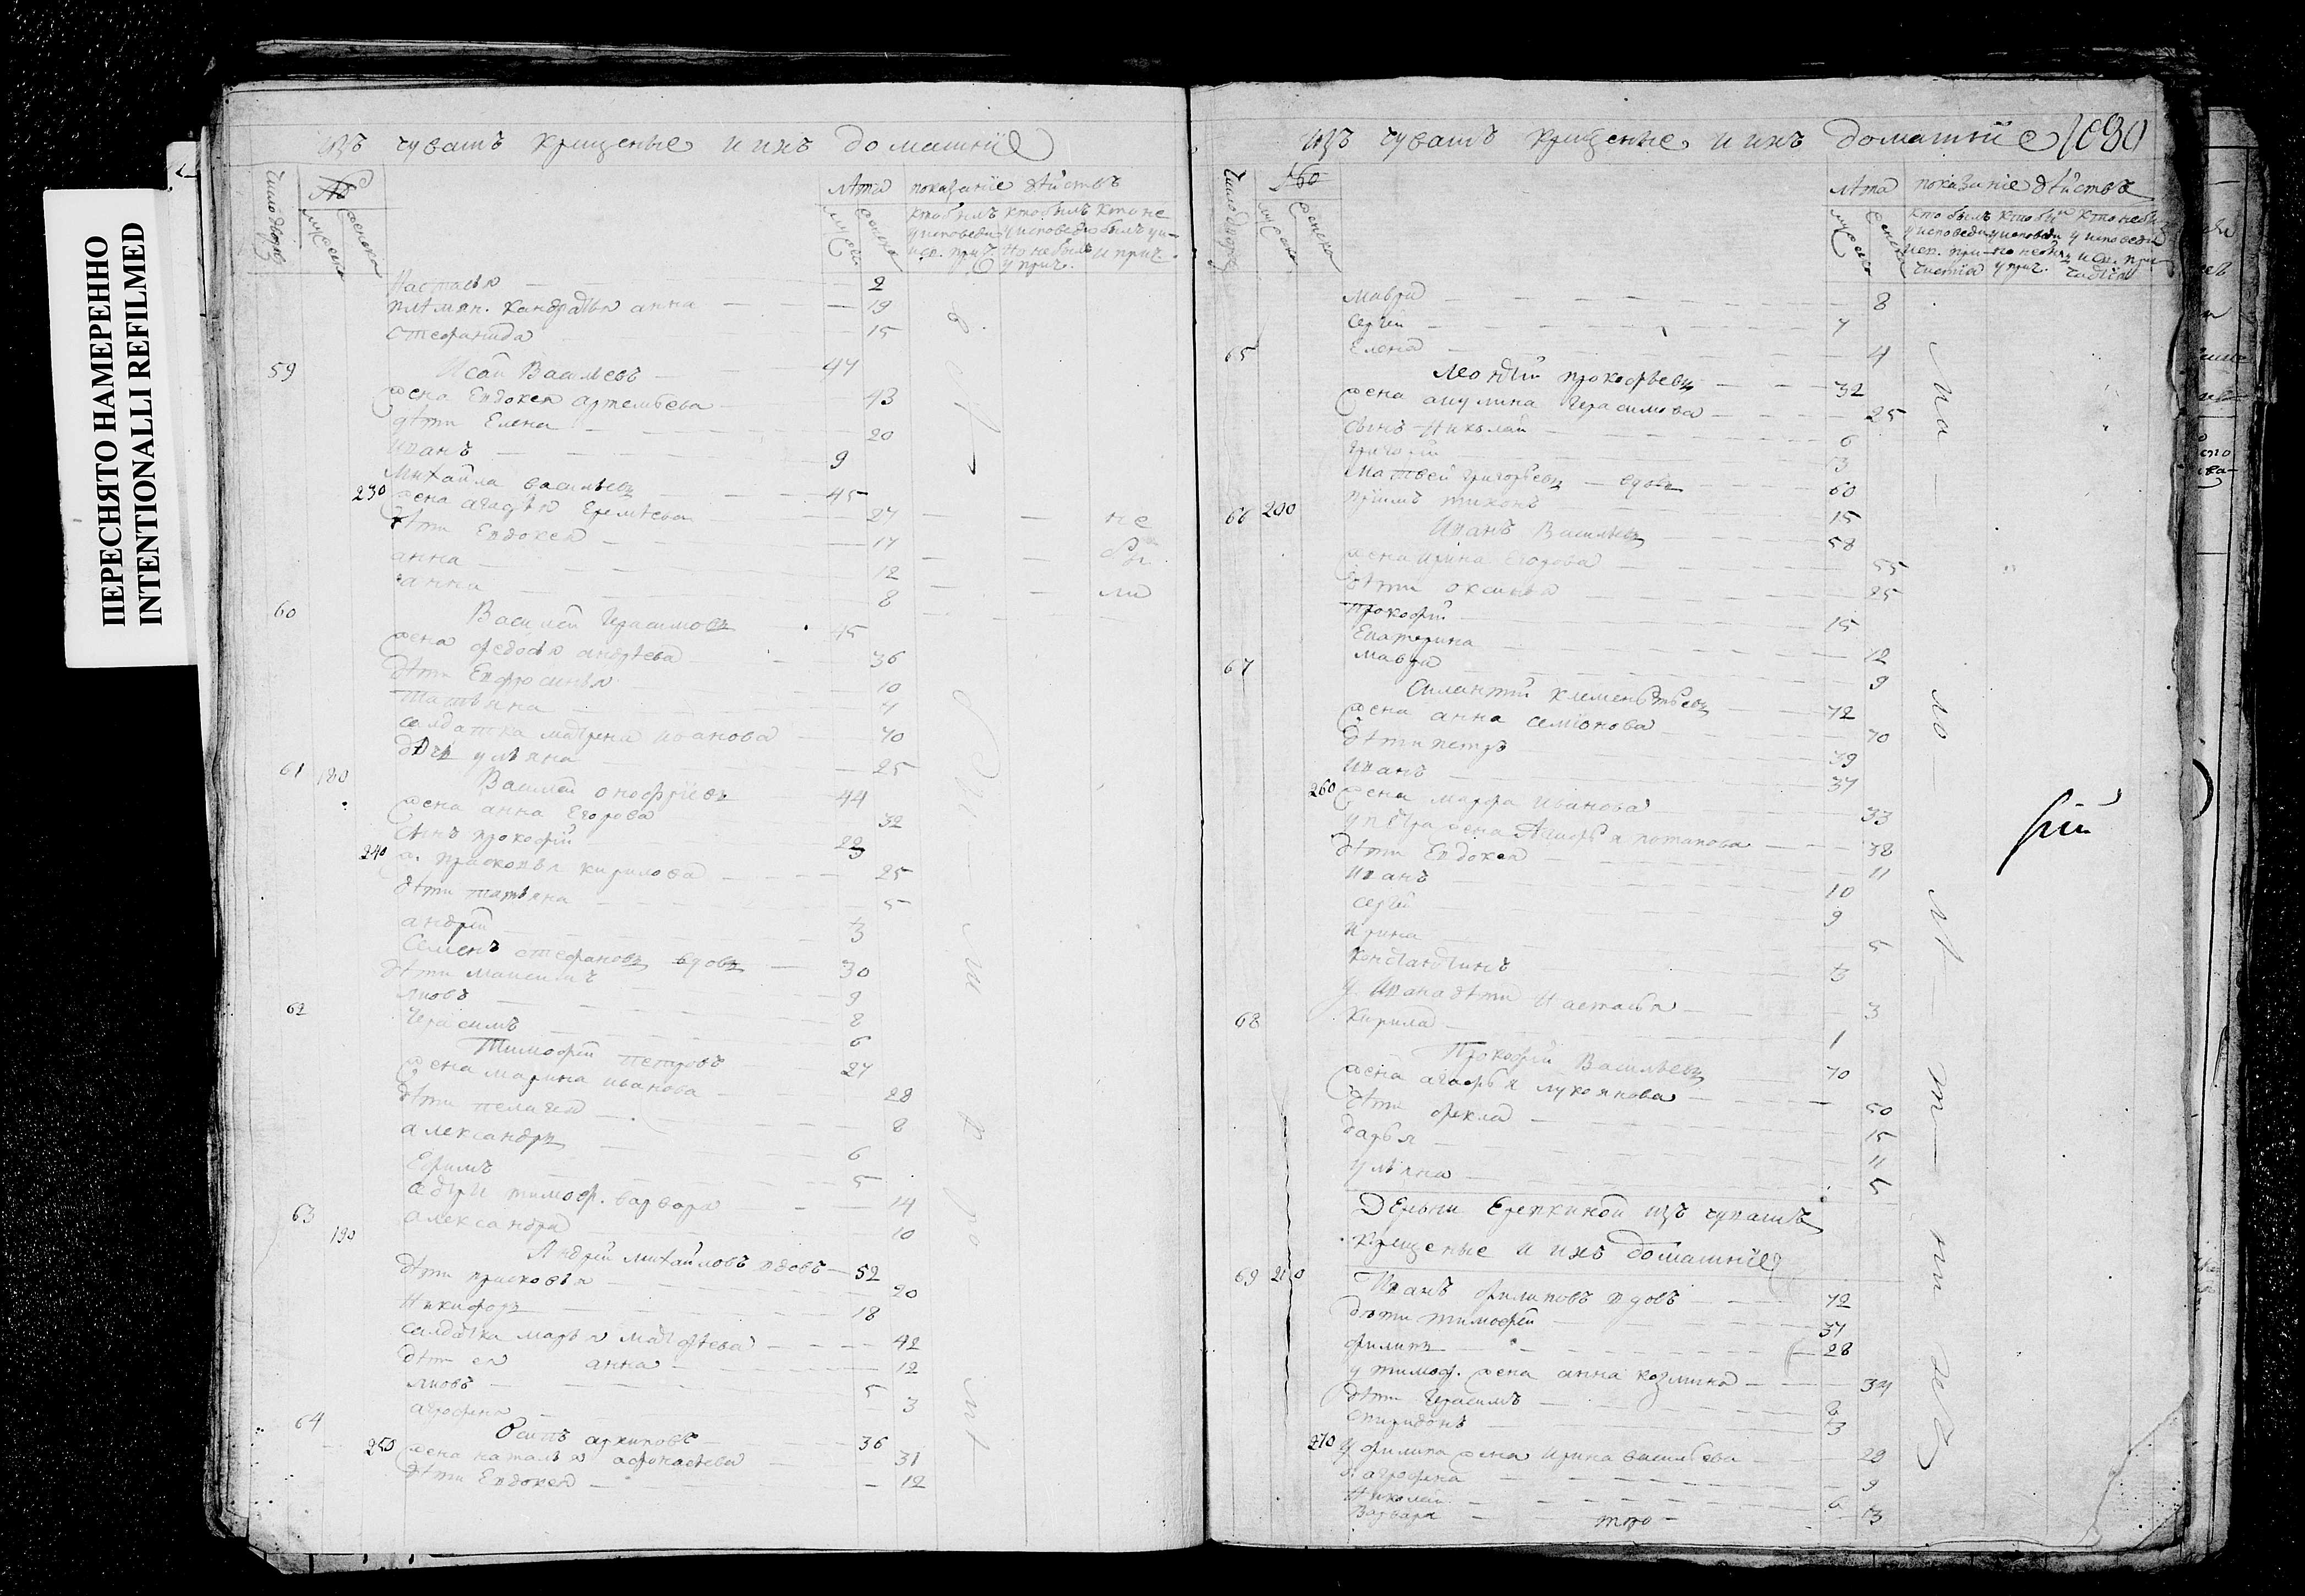 ПЕРЕСНЯТО НАМЕРЕННО
INTENTIONALLI REFILMED
изъ чувашъ крещеные и ихъ домашнїе
число дворовъ
мужеска женска
лѣта показанїе дѣйствъ
мужеск женска
кто былъ у исповеди и св. прич. кто былъ у исповеди но не былъ у прич. кто не былъ у исп. и прич.
Настасья 2
племян. Кандратья анна 19
стефанида 15
59 Исаи Васильевъ 47
жена Евдокея артемьева 43
дѣти Елена 20
Иванъ 9
Михайла васильевъ 45
230 жена агафья Еремѣева 27 не
дѣти Евдокея 17 бы
анна 12
анна 8 ли
60 Василей Герасимовъ 45
жена федосья андрѣева 36
дѣти Евфросинья 10
Татьяна 7
салдатка матрена иванова 70
дочь ульяна 25
61 180 Василей онофрїевъ 44
жена анна Егорова 32
сынъ прокофїй 22
240 ж. прасковья кирилова 25
дѣти татьяна 5
андрей 3
Семенъ стефановъ вдовъ 30
дѣти Максимъ 9
Иовъ 8
Герасимъ 6
62 Тимофей Петровъ 27
жена марина иванова 28
дѣти пелагея 8
александръ 6
Ефимъ 5
сестры тимоф. варвара 14
александра 10
63 190 Андрей михайловъ вдовъ 52
дѣти прасковья 20
Никифоръ 18
салдатка марья матфѣева 42
дѣти ея анна 12
Иовъ 5
агрофена 3
64 Осипъ архиповъ 36
250 жена наталья афонасьева 31
дѣти Евдокея 12
изъ чувашъ крещеные и ихъ домашнїе 1030
число дворовъ
мужеска женска
лѣта показанїе дѣйствъ
Мавра 8
Сергѣй 7
Елена 4
65 Леонтїй прокофьевъ 32
жена акулина Герасимова 25
сынъ Николай 6
Григорїй 3
Матвей григорьевъ вдовъ 60
200 прїимъ тихонъ 15
66 Иванъ Васильевъ 58
жена ирина Егорова 55
дѣти оксинья 25
прокофїй 15
Екатерина 12
мавра 9
67 Силантїй клементьевъ 72
жена анна семїонова 70
дѣти петръ 39
Иванъ 37
260 жена марфа иванова 33
у петра жена Агафья потапова 38
дѣти Евдокея 11
Иванъ 10
сергѣй 9
Ирина 5
Константинъ 3
у Ивана дѣти Настасья 3
Кирила 1
68 Прокофїй Васильевъ 70
жена агафья лукоянова 50
дѣти фекла 15
дарья 11
ульяна 5
Деревни Ерепкиной изъ чувашъ
крещеные и ихъ домашнїе
69 210 Иванъ филиповъ вдовъ 72
дѣти тимофей 37
филипъ 28
у тимоф. жена анна козмина 34
дѣти Герасимъ 8
спиридонъ 3
270 у филипа жена ирина васильева 29
д. агрофена 9
Николай 6
Варвара 3